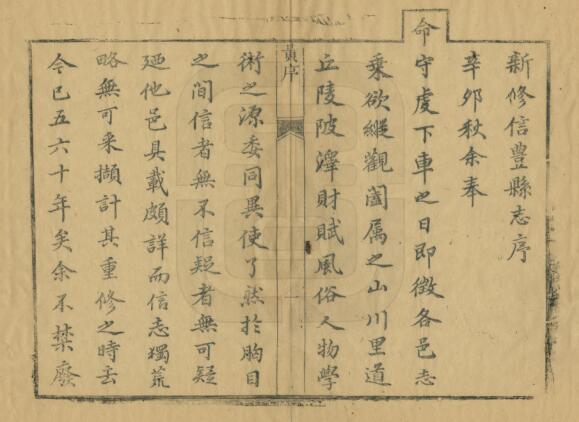 新修信豐縣志序
辛卯秋余奉
命守虔下車之日即徵各邑志
乗欲縱觀闔属之山川里道
丘陵陂澤財賦風俗人物學
黄序
術之源委同異使了然於胸目
之間信者無不信疑者無可疑
廼他邑具載頗詳而信志獨荒
略無可采擷計其重修之時去
今已五六十年矣余不禁廢
一